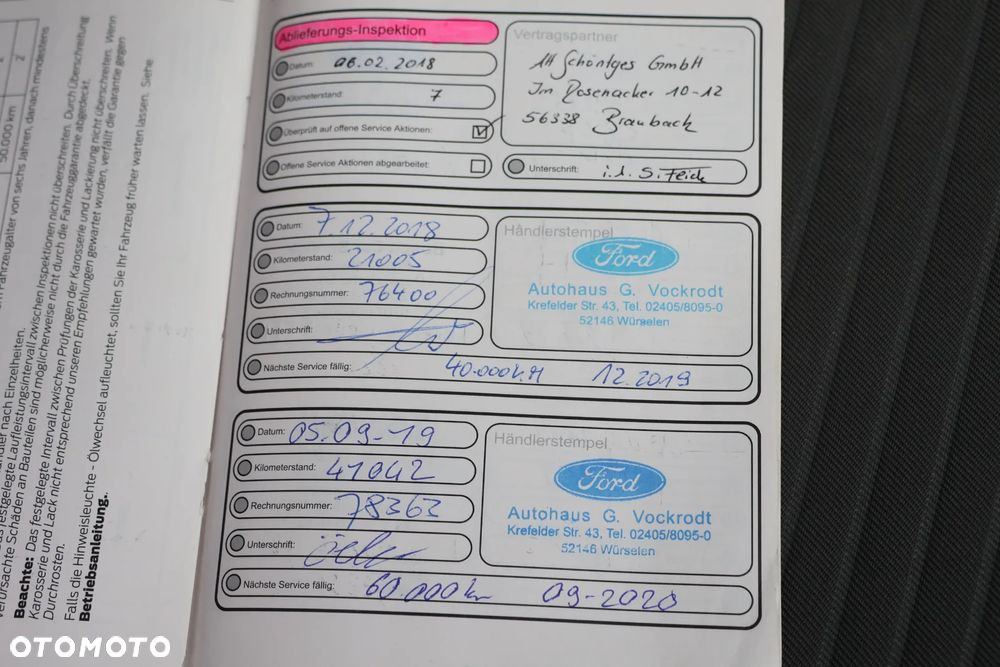 50.000 km
Fahrzeugalter von sechs Jahren, danach mindestens
nach Einzelheiten.
festgelegte Laufleistungsintervall zwischen Inspektionen nicht überschreiten. Durch Überschreitung
verursachte Schäden an Bauteilen sind möglicherweise nicht durch die Fahrzeuggarantie abgedeckt.
Beachte: Das festgelegte Intervall zwischen Prüfungen der Karosserie und Lackierung nicht überschreiten. Wenn
Karosserie und Lack nicht entsprechend unseren Empfehlungen gewartet wurden, verfällt die Garantie gegen
Durchrosten.
Falls die Hinweisleuchte - Ölwechsel aufleuchtet, sollten Sie Ihr Fahrzeug früher warten lassen. Siehe
Betriebsanleitung.
Ablieferungs-Inspektion
Datum: 06.02.2018
Kilometerstand: 7
Überprüft auf offene Service Aktionen:
Offene Service Aktionen abgearbeitet:
Vertragspartner
Schöntges GmbH
Im Rosenacker 10-12
56338 Braubach
Unterschrift:
Datum: 7.12.2018
Kilometerstand: 21005
Rechnungsnummer: 76400
Unterschrift:
Händlerstempel
Ford
Autohaus G. Vockrodt
Krefelder Str. 43, Tel. 02405/8095-0
52146 Würselen
Nächste Service fällig: 40.000KM 12.2019
Datum: 05.09-19
Kilometerstand: 41042
Rechnungsnummer: 78363
Unterschrift:
Händlerstempel
Ford
Autohaus G. Vockrodt
Krefelder Str. 43, Tel. 02405/8095-0
52146 Würselen
Nächste Service fällig: 60.000 km 09-2020
OTOMOTO